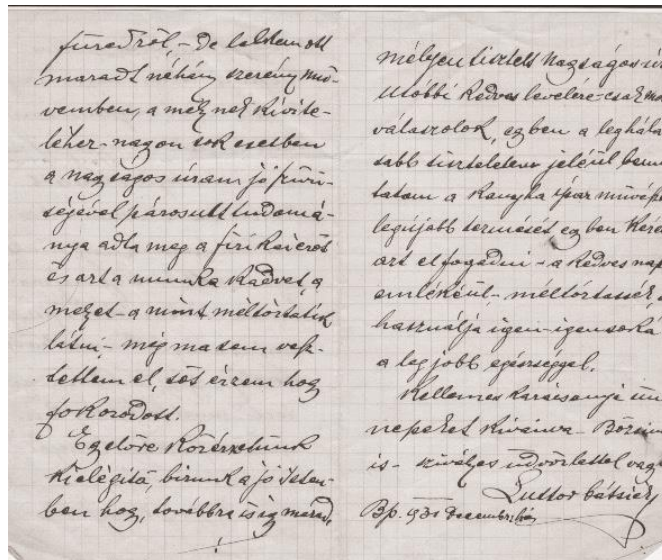 füredről, - De lelkem ott
maradt néhány szerény mű-
vemben, a melynek kivite-
léhez - nagyon sok esetben
a nagyságos úram jó szívű-
ségével párosult tudomá-
nya adta meg a fizikai erőt
és azt a munka kedvet, a
melyet - a mint méltóztatik
látni - még ma sem vesz-
tettem el, sőt érzem hogy
fokozódott.
Egyelőre közérzetünk
kielégítő, bízunk a jó Isten-
ben hogy, továbbra is így marad,
mélyen tisztelt Nagyságos
Utóbbi kedves levelére - csak
válaszolok, egyben a leghálá
sabb tiszteletem jeléül
tatom a konyha ipar
legújabb termését egyben
azt elfogadni - a kedves
emlékéül - méltóztassék,
használja igen - igen soká
a legjobb egészséggel.
Kellemes karácsonyi
nepeket kívánva -
is - szívélyes üdvözlettel
Luttor
Bp. 1931 December